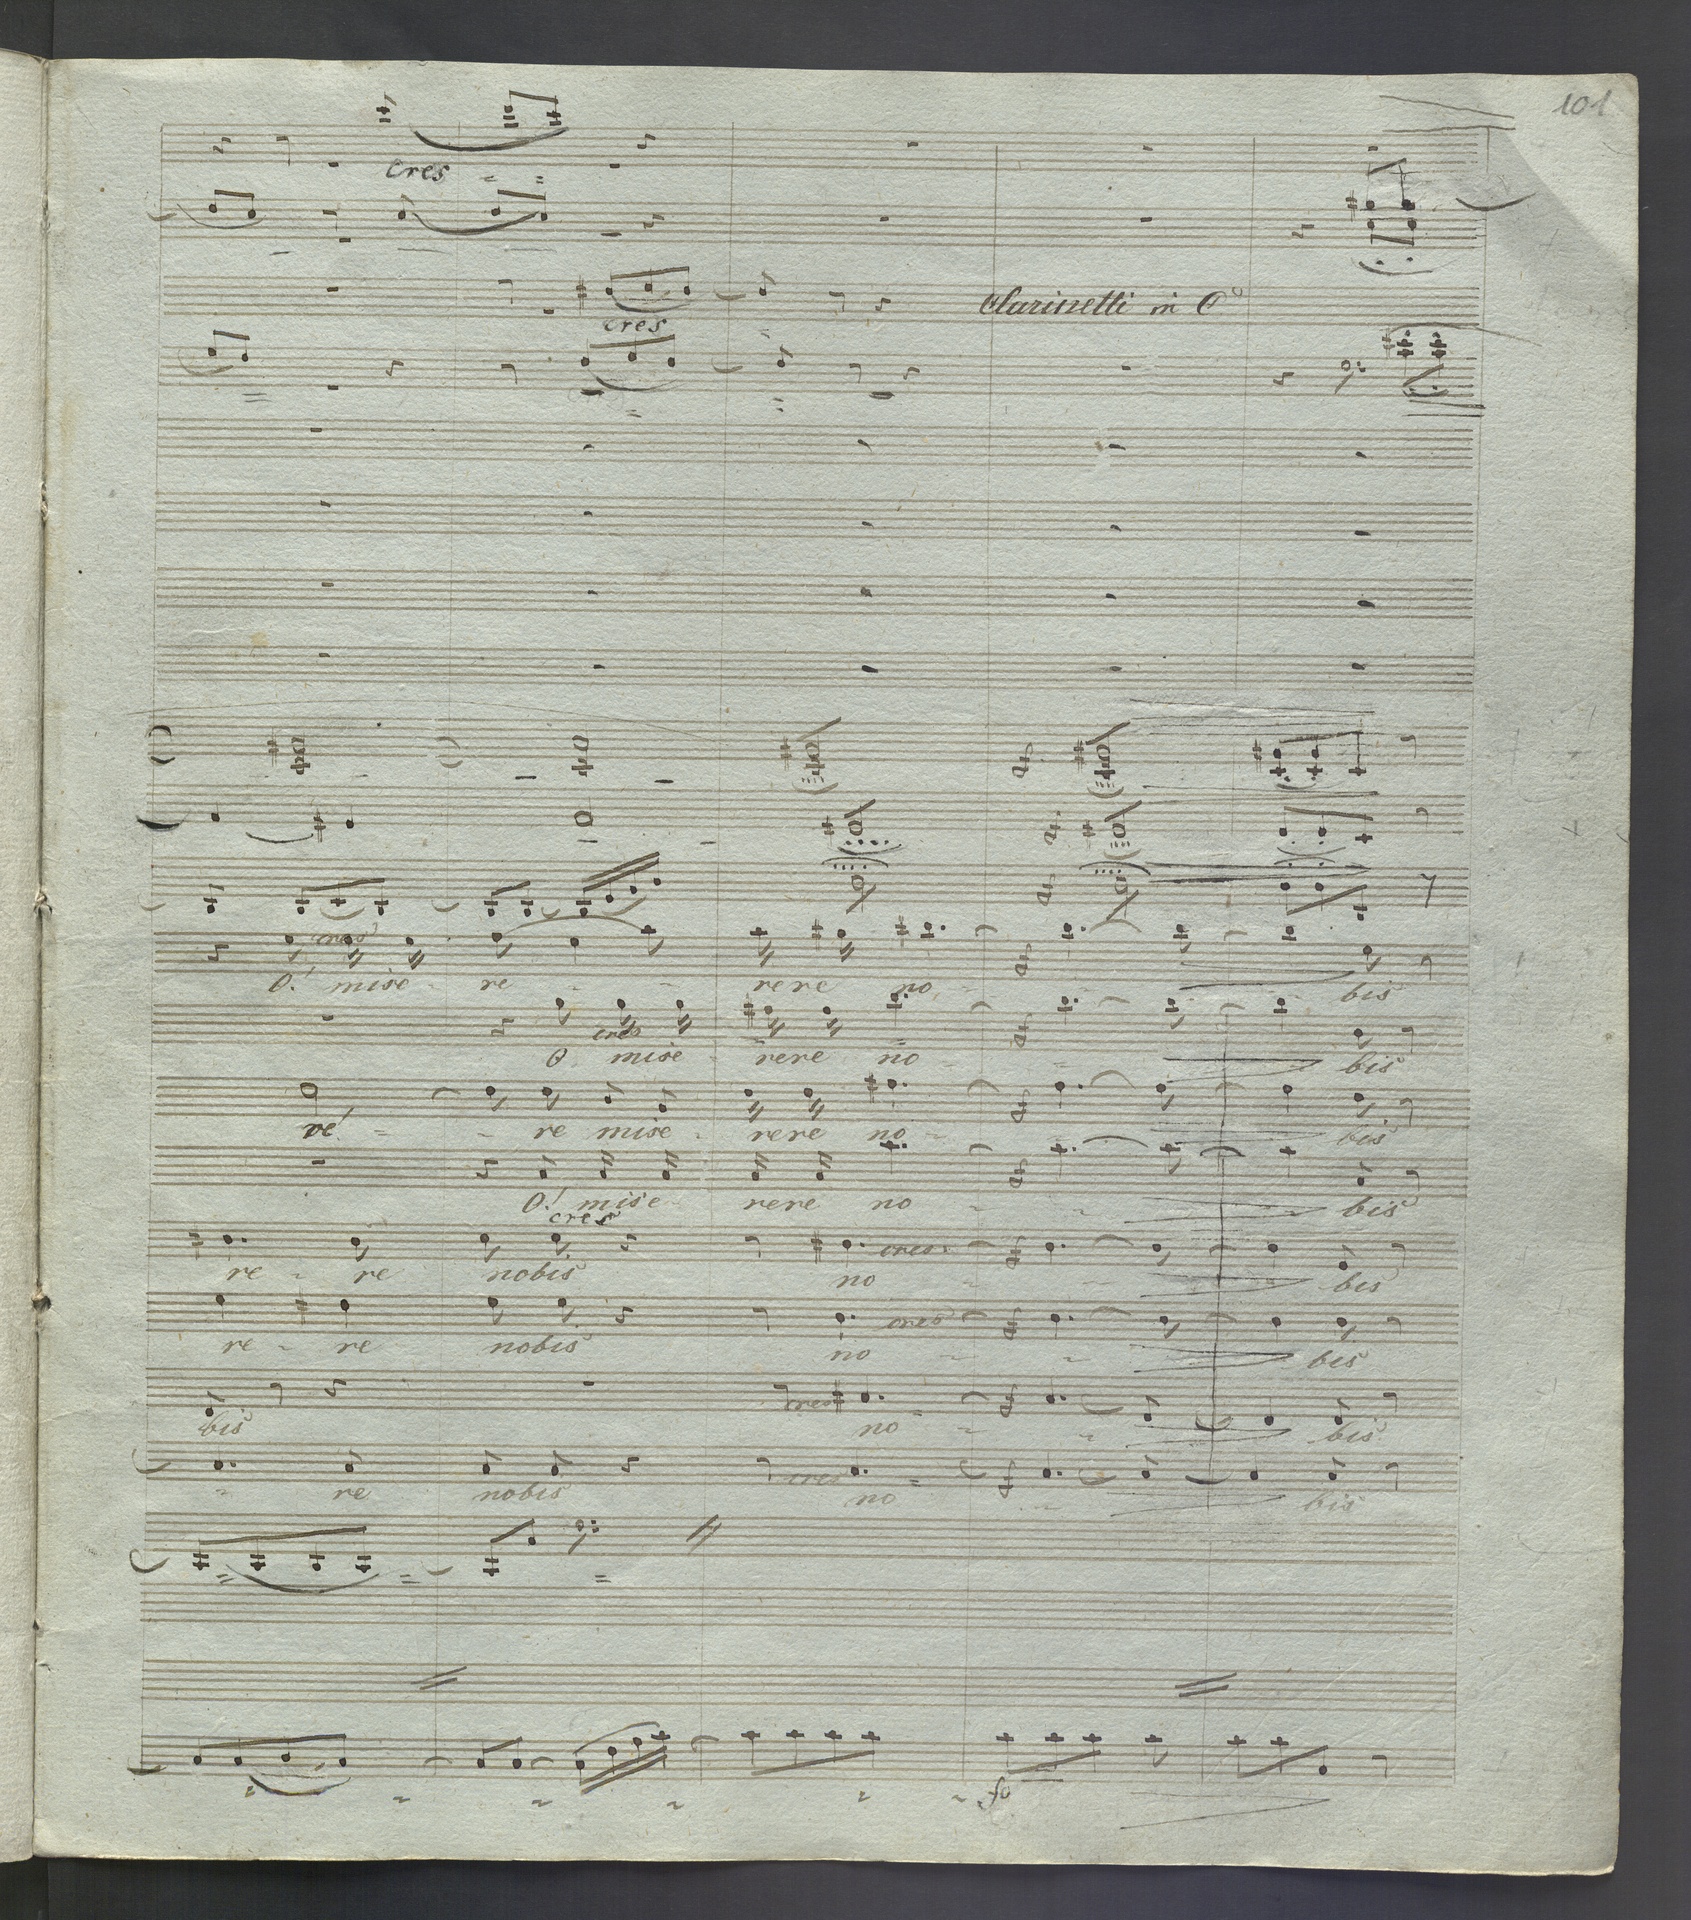 101
cres
cres
Clarinetti in C
cres
O! mise - re - - rere no - - - bis
cres
O mise - rere no - - bis
ré - - re mise - rere no - - bis
O! mise - rere no - - bis
cres
cres
re - re nobis no - - bis
cres
re - re nobis no - - bis
cres
bis no - - - bis
cres
- re nobis no - - bis
fo